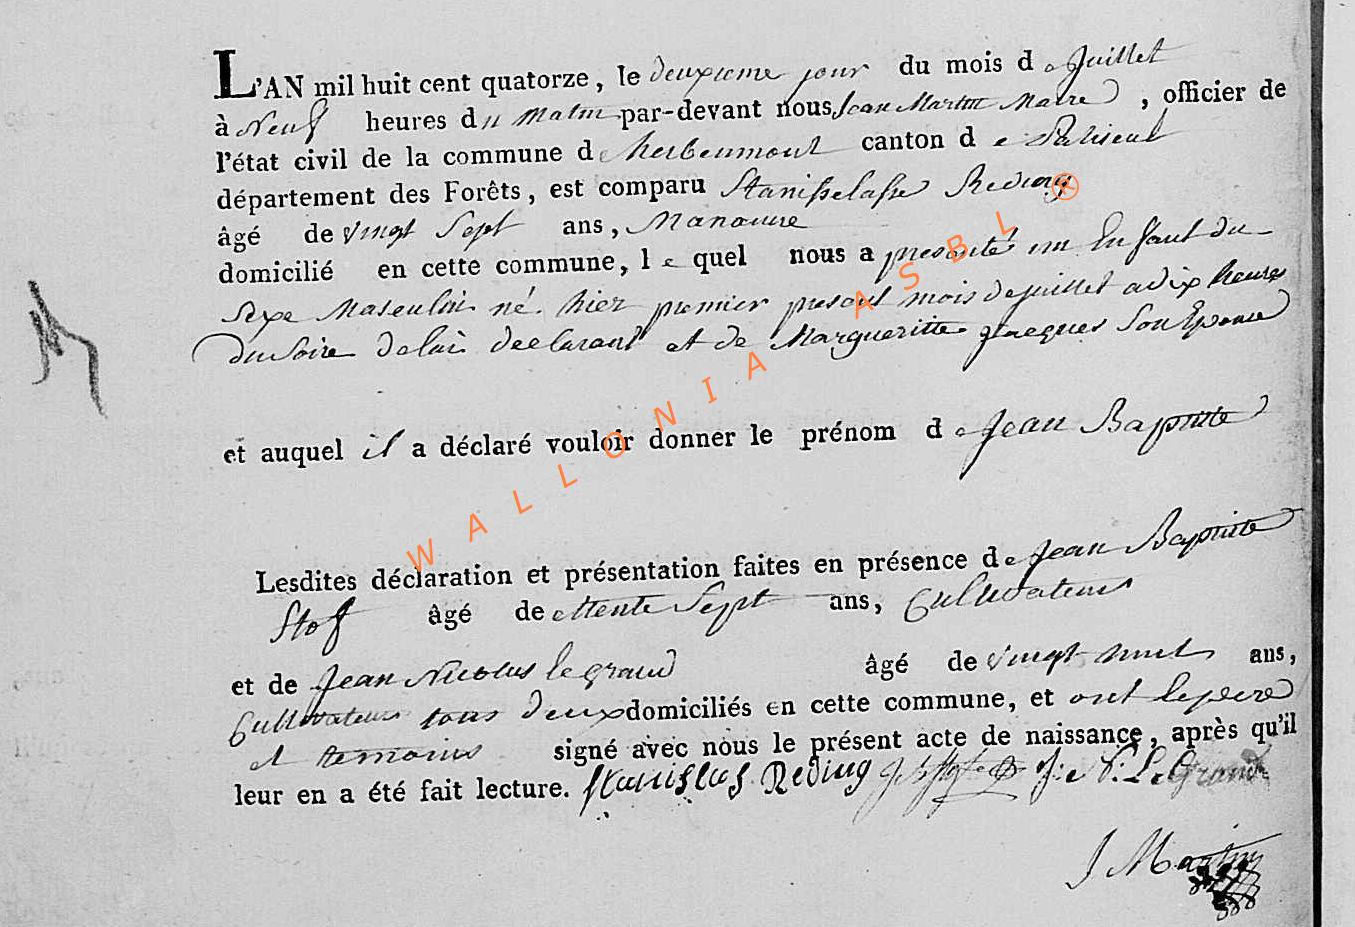 L'AN mil huit cent quatorze, le deuxieme jour du mois de Juillet
à Neuf heures du Matin par-devant nous Jean Martin Maire, officier de
l'état civil de la commune de herbeumont canton de Paliseul
département des Forêts, est comparu Stanisselasse Reding
âgé de vingt Sept ans, Manœuvre
domicilié en cette commune, lequel nous a presenté un Enfant du
Sexe Masculin né hier premier present mois de juillet a dix heures
du Soire de lui declarant et de Margueritte Jacques Son Epouse
et auquel il a déclaré vouloir donner le prénom de Jean Baptiste
Lesdites déclaration et présentation faites en présence de Jean Baptiste
Stof âgé de trente Sept ans, Cultivateur
et de Jean Nicolas legrand âgé de vingt huit ans,
Cultivateur tous deux domiciliés en cette commune, et ont le pere
et temoins signé avec nous le présent acte de naissance, après qu'il
leur en a été fait lecture. Stanislas Reding J: N: LeGrand
J Martin
WALLONIA ASBL